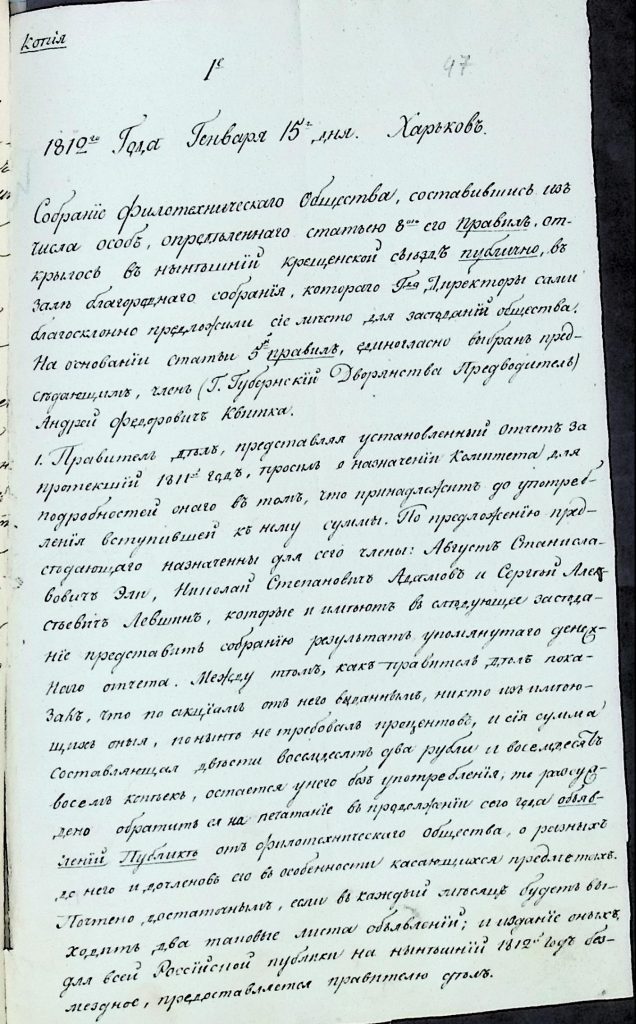 Копія
1е
47
1812го Года Генваря 15го дня. Харьковъ.
Собраніе Филотехническаго Общества, составившись изъ
числа особъ, опредѣленнаго статьею 8ою его правилъ, от-
крылось въ нынѣшній крещенской съѣздъ публично, въ
залѣ благороднаго собранія, котораго Гда Директоры сами
благосклонно предложили сіе мѣсто для засѣданій общества.
На основаніи статьи 5й правилъ, единогласно выбранъ пред-
сѣдающимъ, членъ (Г. Губернскій Дворянства Предводитель)
Андрей Федоровичъ Квитка.
1. Правитель дѣлъ, представляя установленный Отчетъ за
протекшій 1811й годъ, просилъ о назначеніи Комитета для
подробностей онаго въ томъ, что принадлежитъ до употреб-
ленія вступившей къ нему суммы. По предложенію пред-
сѣдающаго назначенны для сего члены: Августъ Станисла-
вовичъ Эли, Николай Степановичъ Адамовъ и Сергѣй Алек-
сѣевичъ Левшинъ, которые и имѣютъ въ слѣдующее засѣда-
ніе представить собранію результатъ упомянутаго денеж-
наго отчета. Между тѣмъ, какъ правитель дѣлъ пока-
залъ, что по акціямъ отъ него выданнымъ, никто изъ имѣю-
щихъ оныя, понынѣ не требовалъ процентовъ, и сія сумма
составляющая двѣсти восемдесятъ два рубли и восемдесятъ
восемъ копѣекъ, остается у него безъ употребленія; то разсуж-
дено обратить ея на печатаніе въ продолженіи сего года объяв-
леній Публикѣ отъ Филотехническаго Общества, о разныхъ
до него и до членовъ его въ особенности касающихся предметахъ.
Почтено достаточнымъ, если въ каждый мѣсяцъ будетъ вы-
ходить два таковые листа объявленій; и изданіе оныхъ
для всей Россійской публики на нынѣшній 1812й годъ без-
мездное, предоставляется правителю дѣлъ.